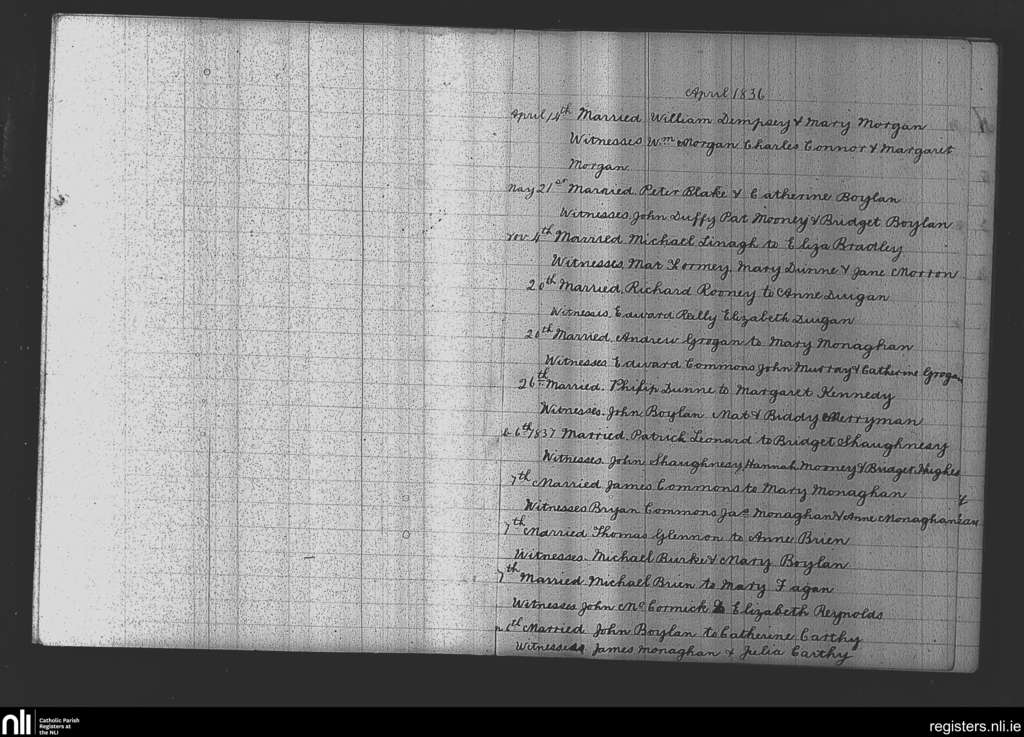 April 1836
April 14th Married William Dempsey & Mary Morgan
Witnesses Wm Morgan Charles Connor & Margaret
Morgan
May 21st Married Peter Blake & Catherine Boylan
Witnesses John Duffy Pat Mooney & Bridget Boylan
Nov 4th Married Michael Linagh to Eliza Bradley
Witnesses Mat Formey Mary Dunne & Jane Morron
20th Married Richard Rooney to Anne Durgan
Witnesses Edward Reilly Elizabeth Durgan
20th Married Andrew Grogan to Mary Monaghan
Witnesses Edward Commons John Murray & Catherine Grogan
26th Married Philip Dunne to Margaret Kennedy
Witnesses John Boylan Mat & Biddy Merryman
6th 1837 Married Patrick Leonard to Bridget Shaughnesy
Witnesses John Shaughnesy Hannah Mooney & Bridget Hughes
7th Married James Commons to Mary Monaghan
Witnesses Bryan Commons Jas Monaghan & Anne Monaghan
7th Married Thomas Glennon to Anne Brien
Witnesses Michael Burke & Mary Boylan
7th Married Michael Brien to Mary Fagan
Witnesses John McCormick & Elizabeth Reynolds
6th Married John Boylan to Catherine Carthy
Witnesses James Monaghan & Julia Carthy
nli
Catholic Parish
Registers at
the NLI
registers.nli.ie